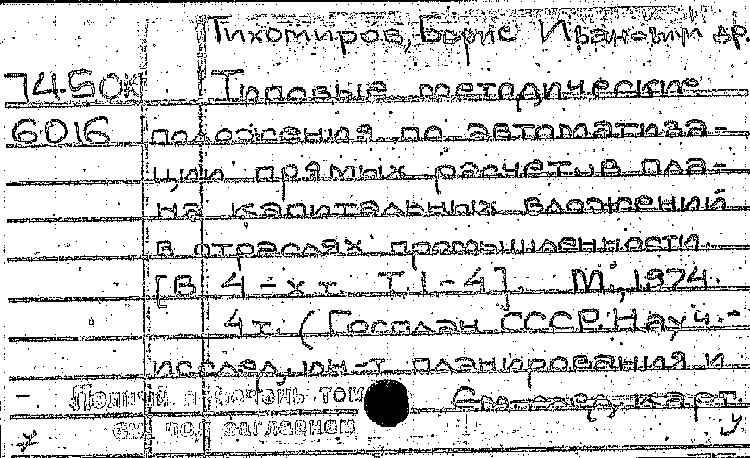 Тихомиров, Борис Иванович и др.
74-50К Типовые методические
6016 положения по автоматиза-
ции прямых расчетов пла-
на капитальных вложений
в отраслях промышленности.
[В 4-х т. Т. 1-4]. М., 1974.
4 т. (Госплан СССР. Науч.-
исслед. ин-т планирования и
Полный перечень том
см. под заглавием
См. след. карт.